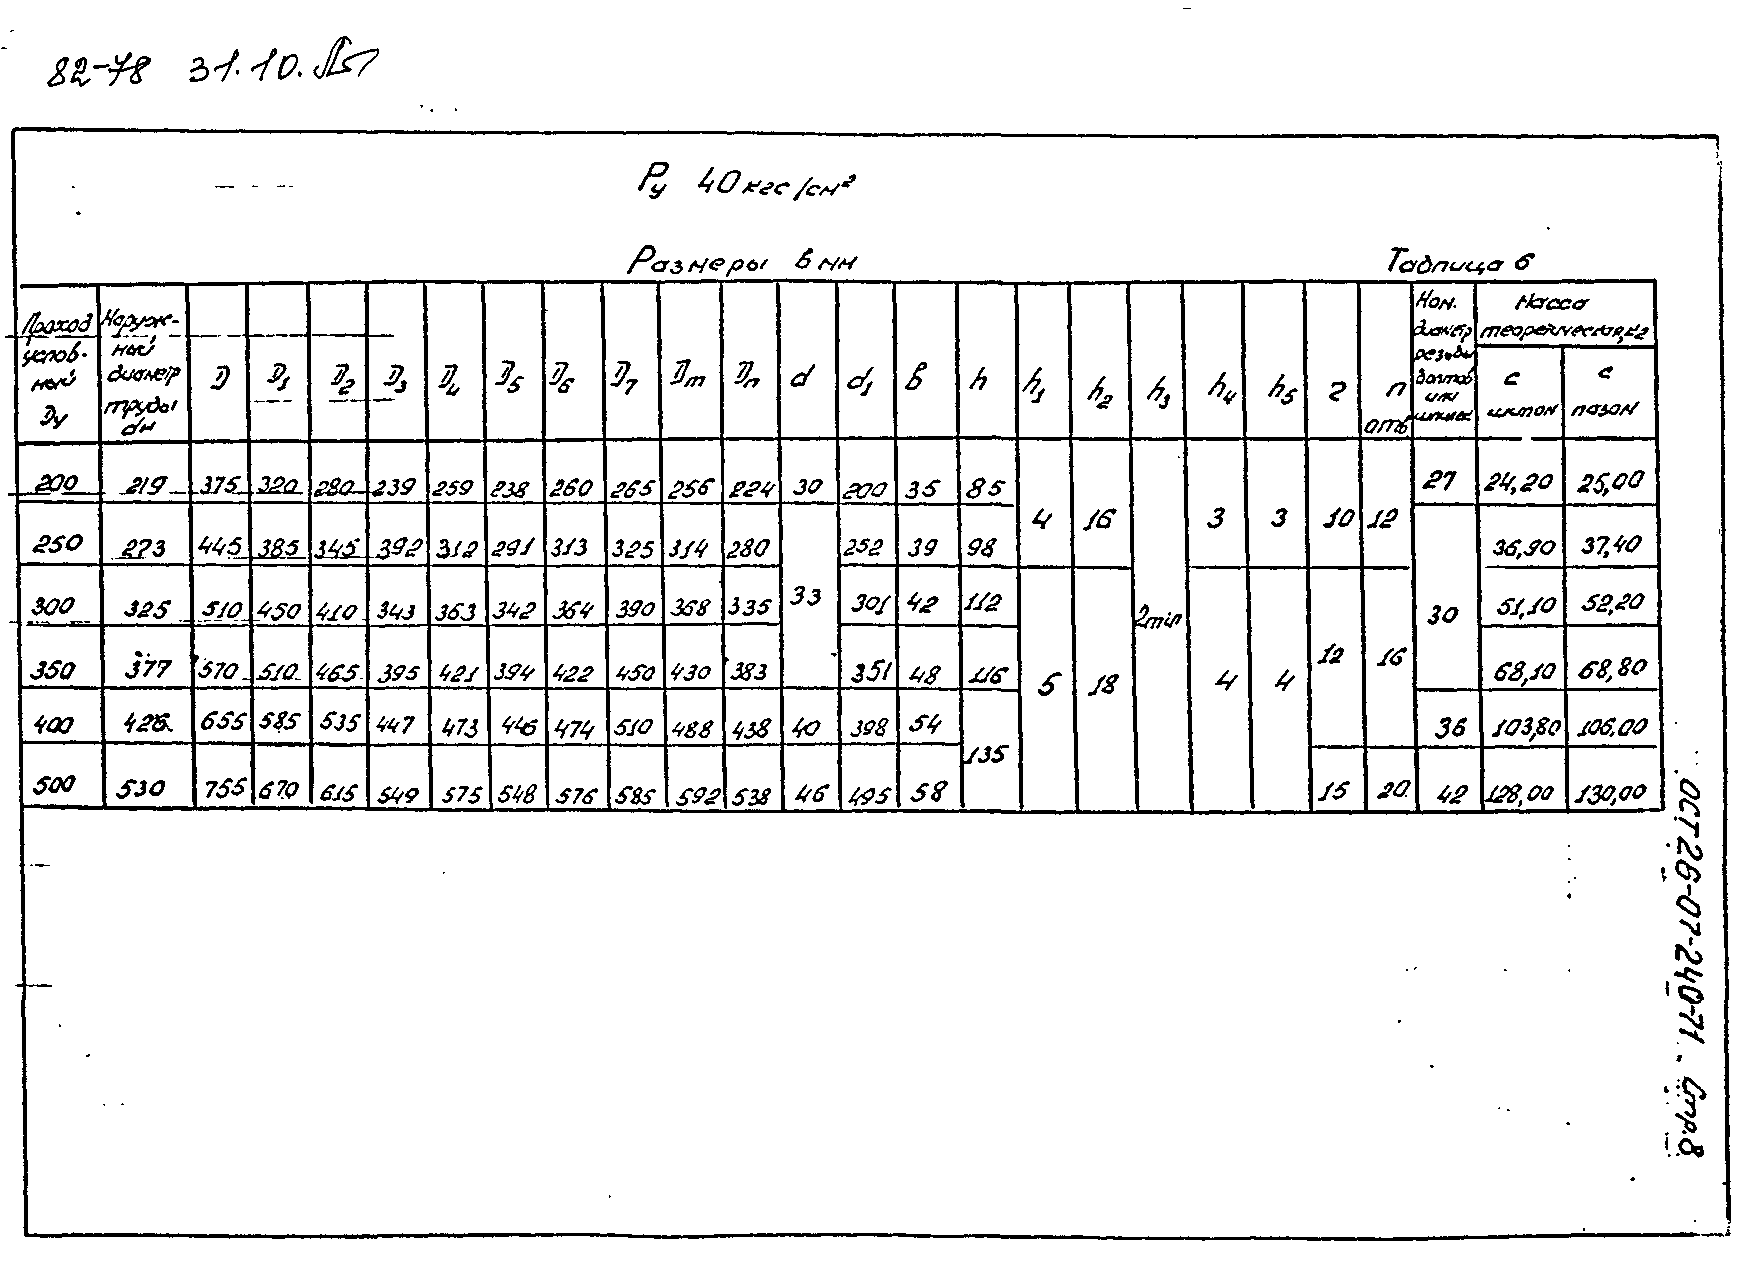 82-78 31.10.
Ру 40 кгс/см²
Размеры в мм
Таблица 6
Проход условный Ду | Наружный диаметр трубы dн | D | D1 | D2 | D3 | D4 | D5 | D6 | D7 | Dm | Dn | d | d1 | b | h | h1 | h2 | h3 | h4 | h5 | r | n отв | Ном. диаметр резьбы болтов или шпилек | Масса теоретическая, кг
с шипом | с пазом
200 | 219 | 375 | 320 | 280 | 239 | 259 | 238 | 260 | 265 | 256 | 224 | 30 | 200 | 35 | 85 | 4 | 16 | 2min | 3 | 3 | 10 | 12 | 27 | 24,20 | 25,00
250 | 273 | 445 | 385 | 345 | 392 | 312 | 291 | 313 | 325 | 314 | 280 | 33 | 252 | 39 | 98 | 30 | 36,90 | 37,40
300 | 325 | 510 | 450 | 410 | 343 | 363 | 342 | 364 | 390 | 368 | 335 | 301 | 42 | 112 | 5 | 18 | 4 | 4 | 12 | 16 | 51,10 | 52,20
350 | 377 | 570 | 510 | 465 | 395 | 421 | 394 | 422 | 450 | 430 | 383 | 351 | 48 | 116 | 68,10 | 68,80
400 | 426 | 655 | 585 | 535 | 447 | 473 | 446 | 474 | 510 | 488 | 438 | 40 | 398 | 54 | 135 | 36 | 103,80 | 106,00
500 | 530 | 755 | 670 | 615 | 549 | 575 | 548 | 576 | 585 | 592 | 538 | 46 | 495 | 58 | 15 | 20 | 42 | 128,00 | 130,00
ОСТ 26-07-240-71. Стр.8